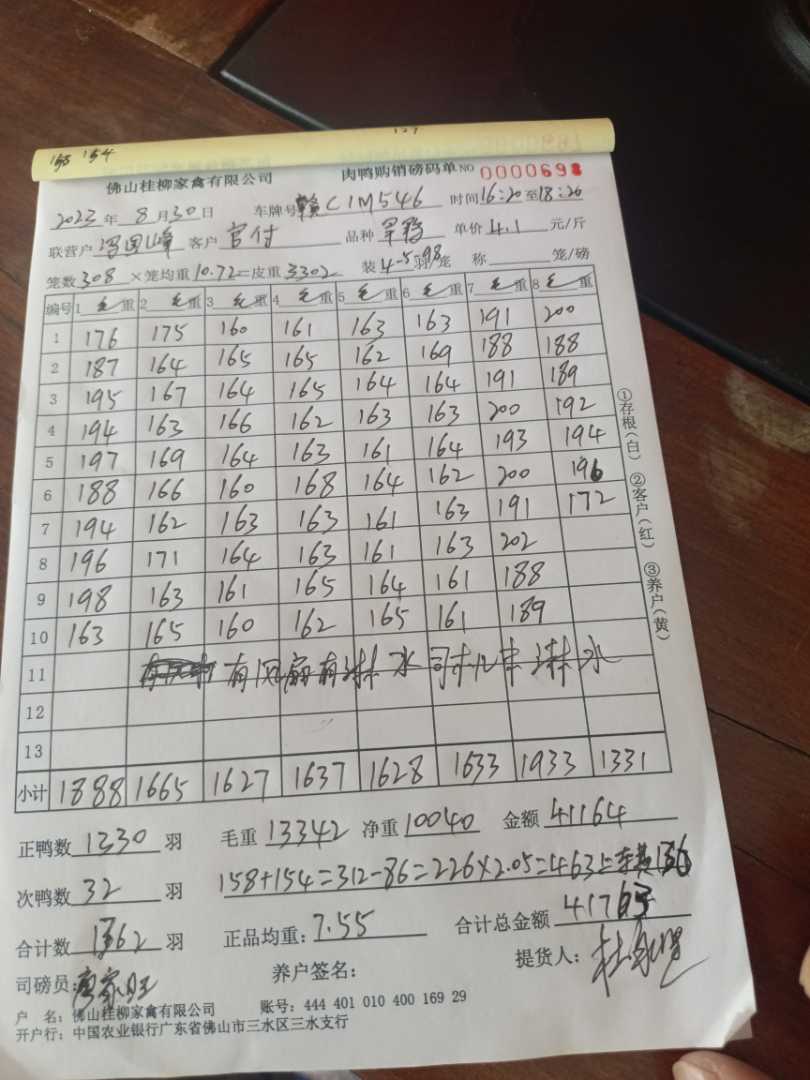 158 154
佛山桂柳家禽有限公司 肉鸭购销磅码单 NO 0000698
2023年8月30日 车牌号 赣C1M546 时间16:20至18:20
联营户 冯国峰 客户 官付 品种 单价4.1元/斤
笼数308×笼均重10.72=皮重3302 装4-5 羽笼 称 笼/磅
编号 1毛重 2毛重 3毛重 4毛重 5毛重 6毛重 7毛重 8毛重
1 176 175 160 161 163 163 191 200
2 187 164 165 165 162 169 188 188
3 195 167 164 165 164 164 191 189
4 194 163 166 162 163 163 200 192
5 197 169 164 163 161 164 193 194
6 188 166 160 168 164 162 200 196
7 194 162 163 163 161 163 191 172
8 196 171 164 163 161 163 202
9 198 163 161 165 164 161 188
10 163 165 160 162 165 161 189
11 有风扇有淋水司机 淋水
12
13
小计 1888 1665 1627 1637 1628 1633 1933 1331
正鸭数1330羽 毛重13342 净重10040 金额41164
次鸭数32羽 158+154=312-86=226×2.05=463
合计数1362羽 正品均重:7.55 合计总金额
司磅员: 廖家旺 养户签名: 提货人:
户 名:佛山桂柳家禽有限公司 账号:444 401 010 400 169 29
开户行:中国农业银行广东省佛山市三水区三水支行
①存根(白) ②客户(红) ③养户(黄)